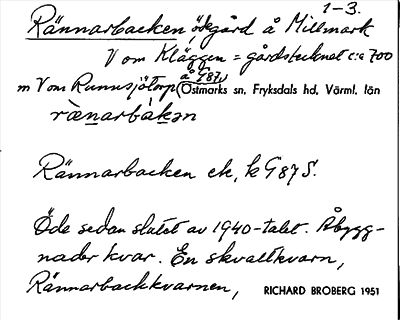 1-3.
Rännarbacken ödegård å Millmark
V om Kläggen = gårdstecknet c:a 700
å G87)
m V om Runnsjötorp (Östmarks sn, Fryksdals hd, Värml. län
ræ̀narbàkən
Rännarbacken ek, k G 87 S.
Öde sedan slutet av 1940-talet. Åbygg-
nader kvar. En skvaltkvarn,
Rännarbackkvarnen,
RICHARD BROBERG 1951